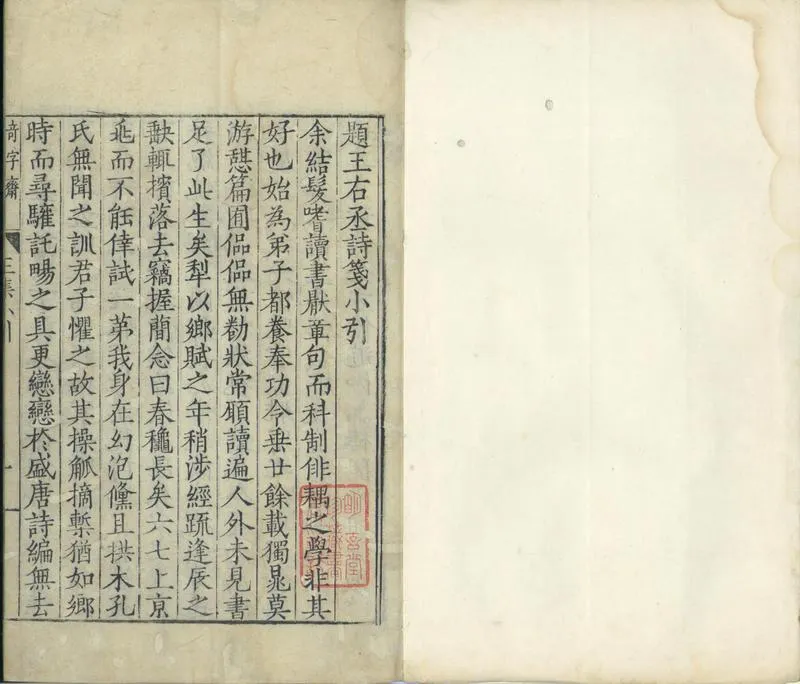 題王右丞詩箋小引
余結髮嗜讀書猒章句而科制俳耦之學非其
好也始為弟子都養奉功令垂廿餘載獨晁莫
游憇篇囿偘偘無勌狀常願讀遍人外未見書
足了此生矣犁以鄉賦之年稍涉經䟽逢辰之
缺輒擯落去竊握蕳念曰春穐長矣六七上京
而不能倖試一第我身在幻泡儻且拱木孔
氏無聞之訓君子懼之故其操觚摛槧猶如鄉
時而尋驩託暢之具更戀戀於盛唐詩編無去
奇字齋 王集小引 一